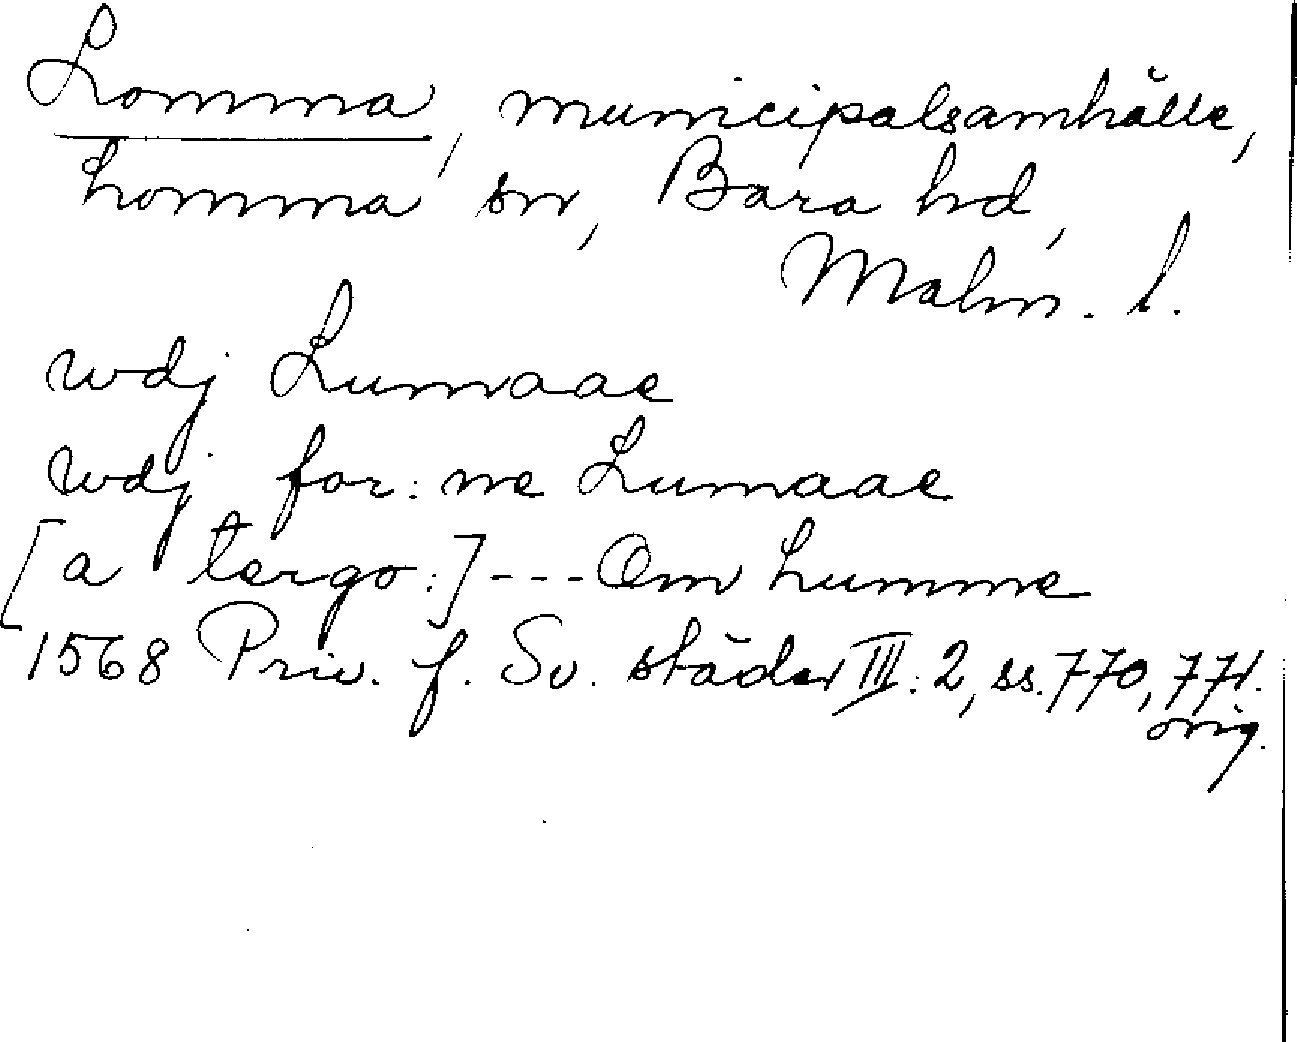 Lomma, municipalsamhälle,
Lomma sn, Bara hd,
Malm. l.
wdj Lumaae
wdj for: ne Lumaae
[a tergo:] --- Om Lumme
1568 Priv. f. Sv. städer III: 2, ss. 770, 771.
orig.